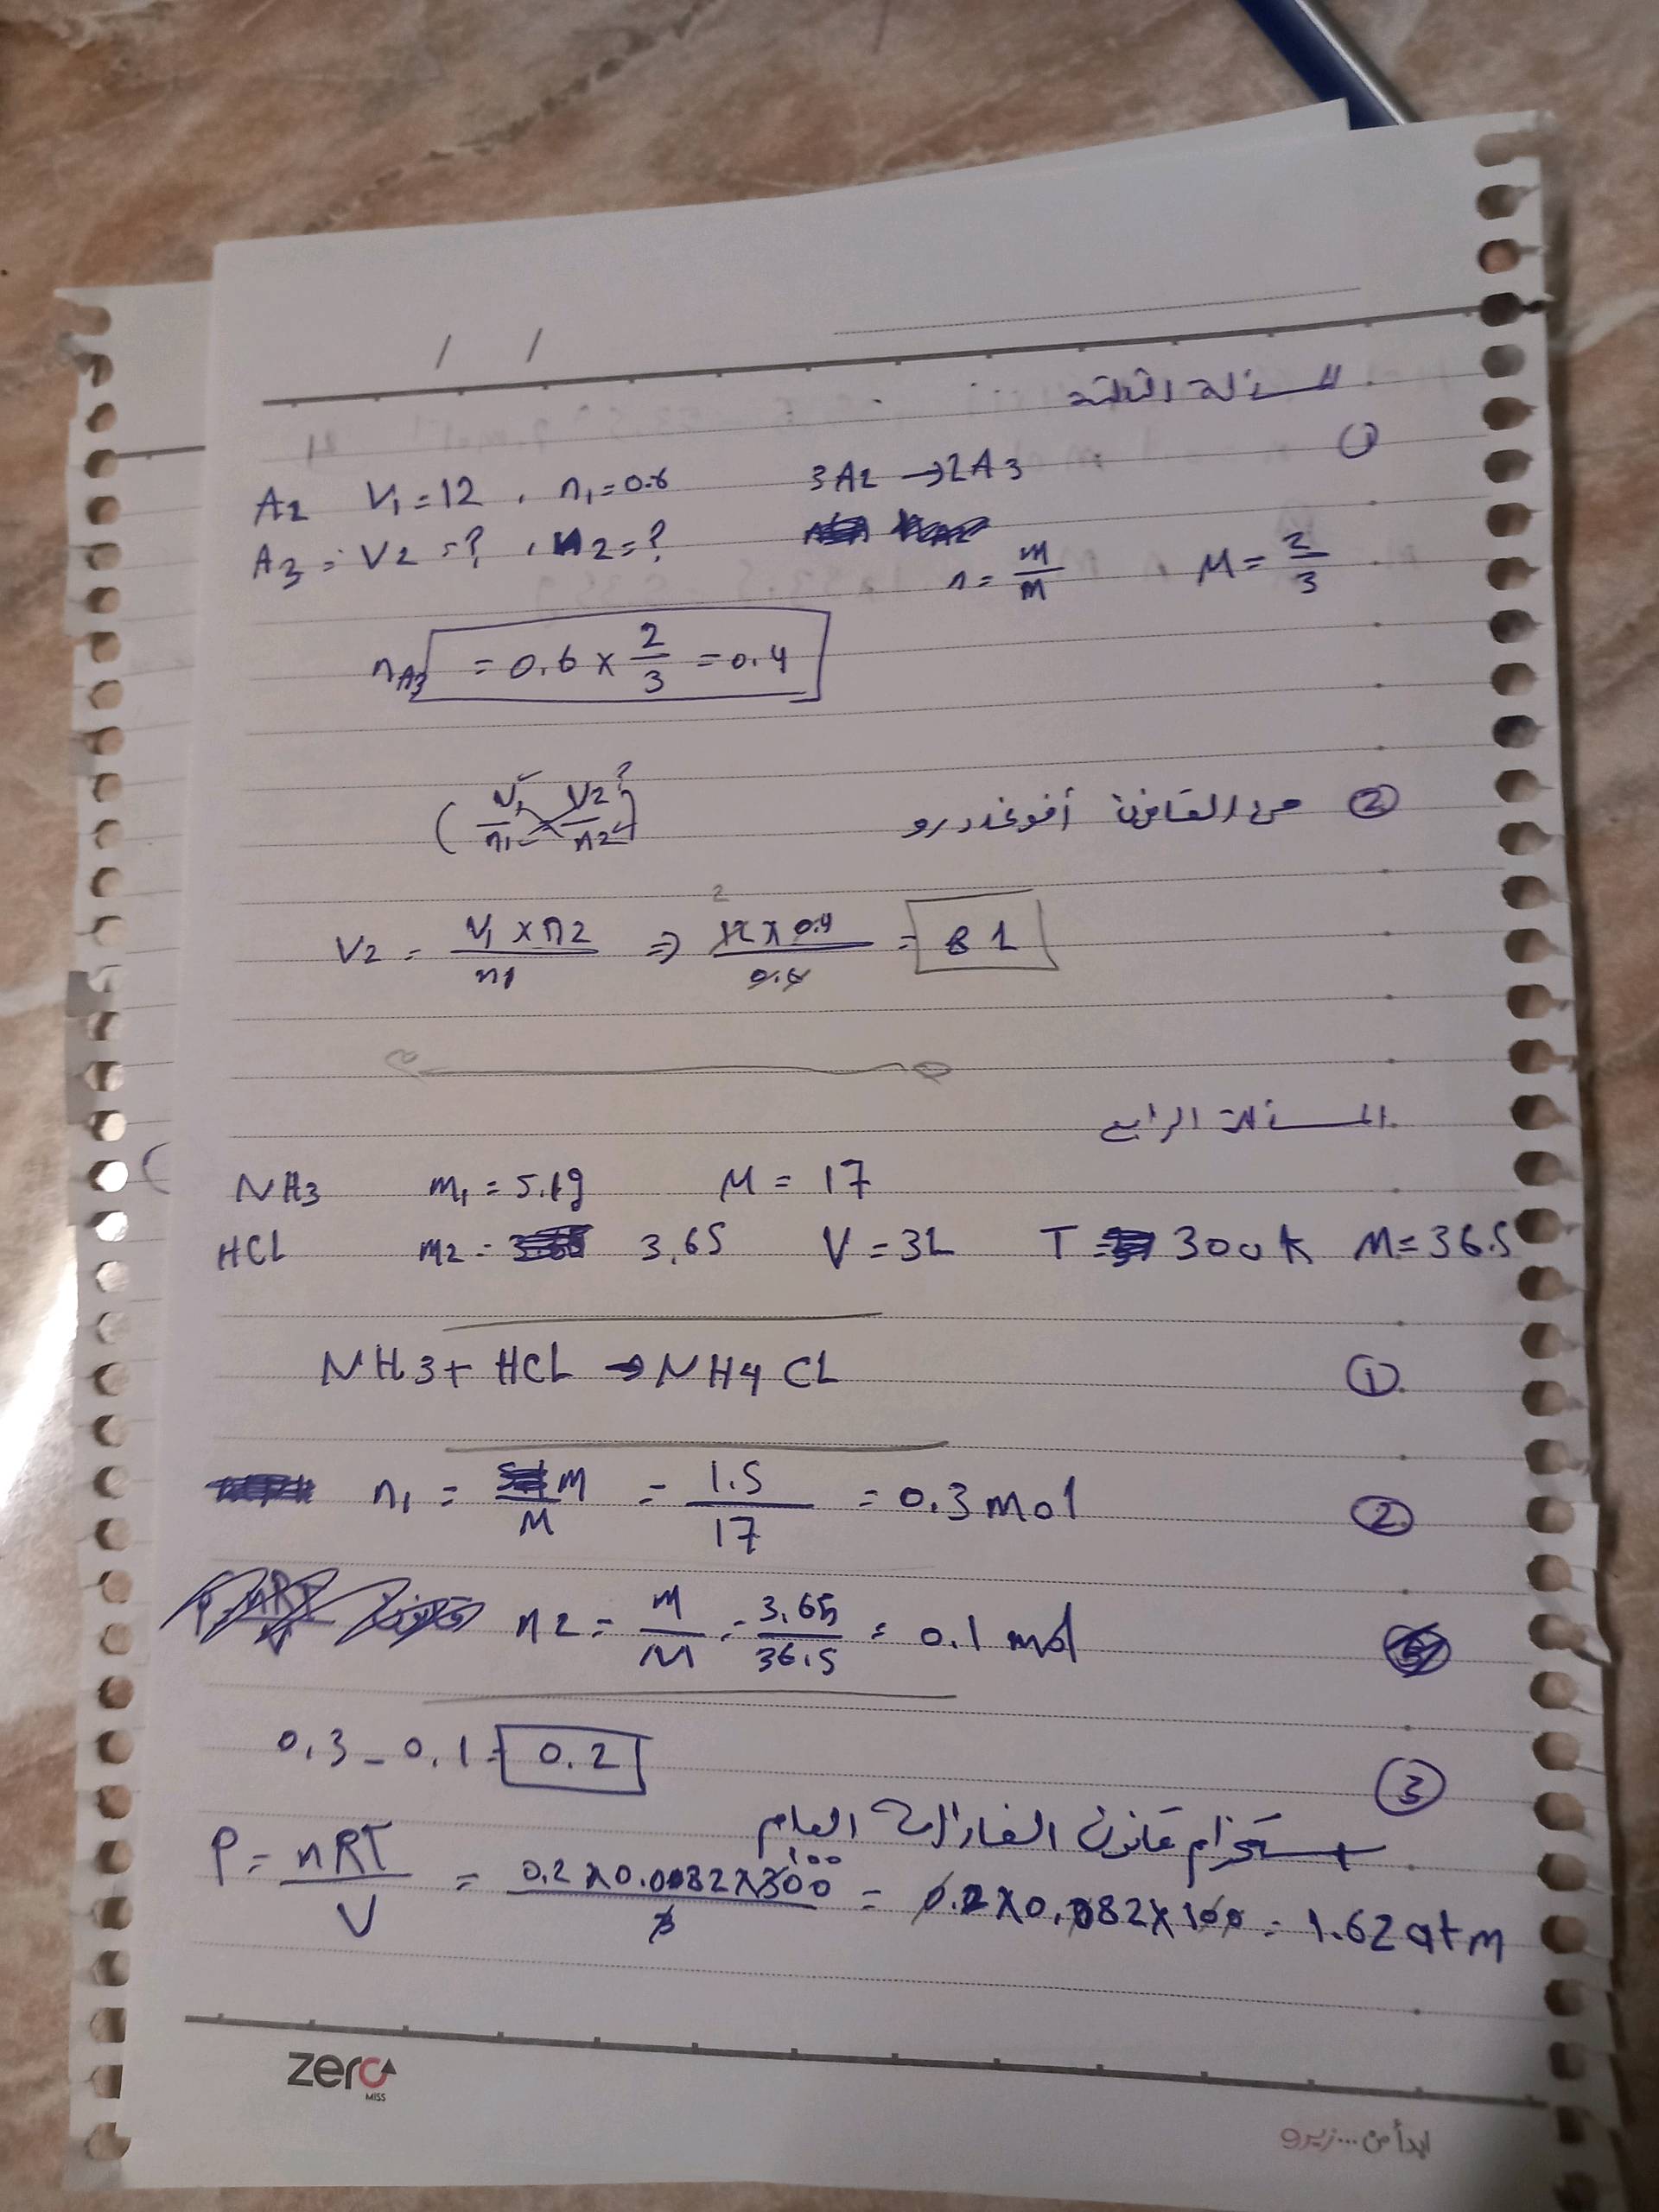 / /
المسئلة الثالثة
①
A2 V1=12 , n1=0.6 3A2 → 2A3
A3 = V2 =? , n2=?
n= m/m M= 2/3
nA3 = 0.6 x 2/3 = 0.4
② من القانون أفوغدرو (V1/n1 = V2/n2) ?
V2 = V1 x n2/n1 ⇒ 12 x 0.4/0.6 = 8 L
2
المسئلة الرابع
NH3 m1 = 5.1g M = 17
HCL m2 = 3.65 V = 3L T = 300 K M = 36.5
① NH3 + HCL → NH4 CL
② n1 = M/M = 1.5/17 = 0.3 mol
n2 = m/M = 3.65/36.5 = 0.1 mol
0.3 - 0.1 = 0.2
③
استخزام قانون الغازات العام
P = nRT/V = 0.2 x 0.0082 x 300/3 = 0.2 x 0.082 x 100 = 1.62 atm
100
zero
MISS
ابدأ من...زيرو